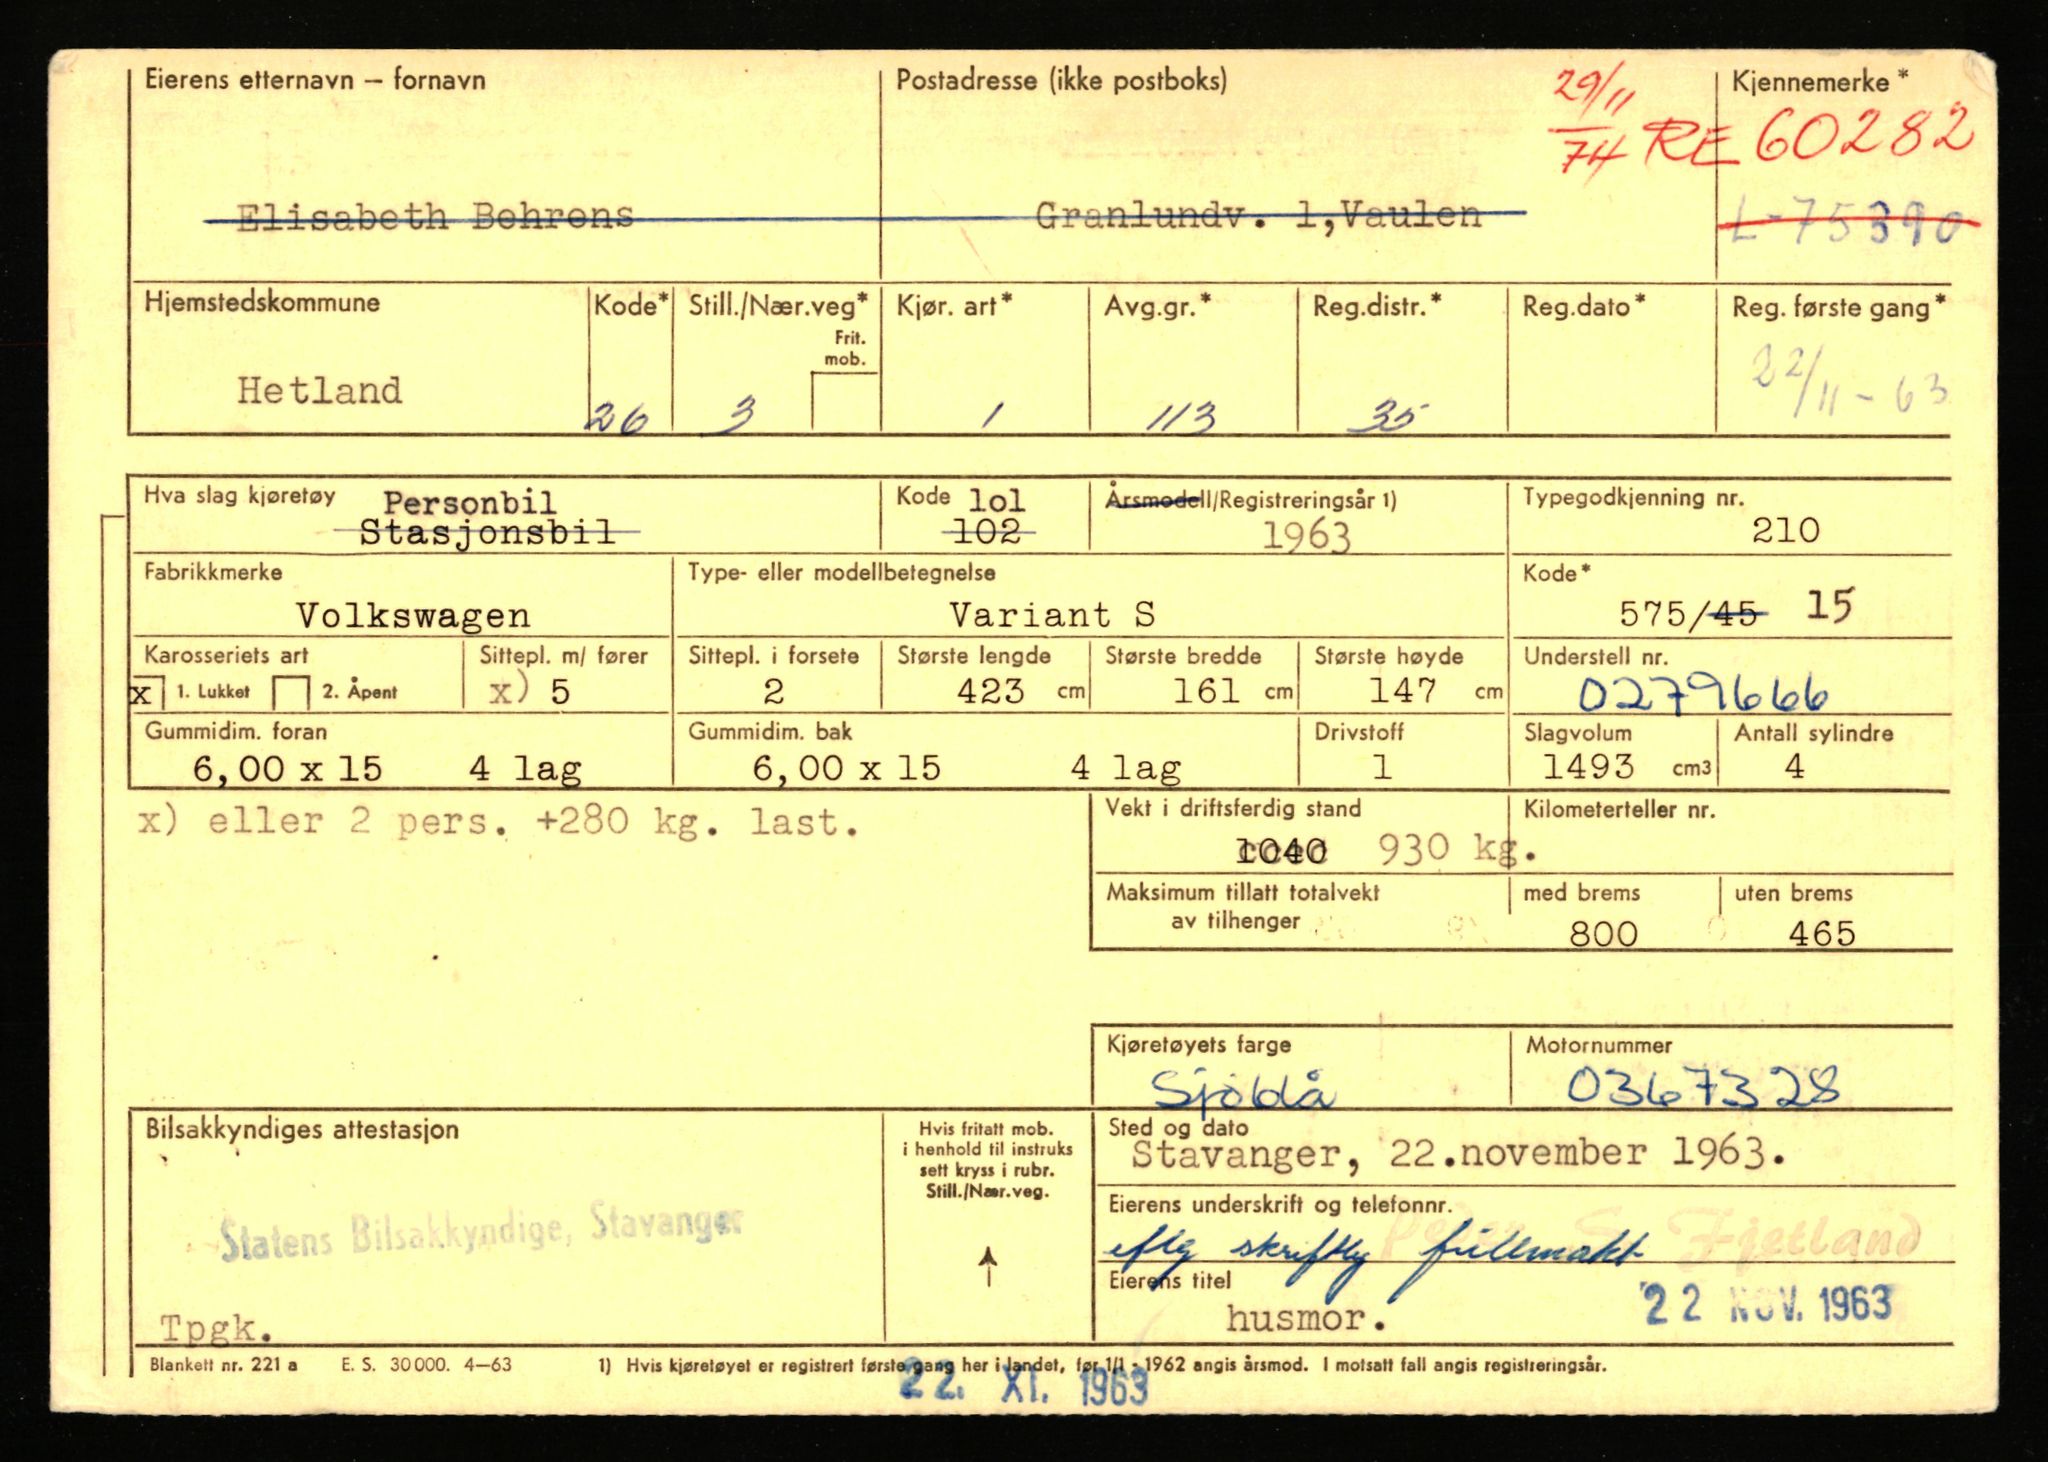 Eierens etternavn – fornavn
Postadresse (ikke postboks)
29/11
74
Kjennemerke*
RE 60282
Elisabeth Behrens
Granlundv. 1,Vaulen
L-75390
Hjemstedskommune
Kode*
Still./Nær.veg*
Frit.
mob.
Kjør. art*
Avg.gr.*
Reg.distr.*
Reg.dato*
Reg. første gang*
Hetland
26
3
1
113
35
22/11-63
Hva slag kjøretøy
Personbil
Stasjonsbil
Kode
lol
102
Årsmodell/Registreringsår 1)
1963
Typegodkjenning nr.
210
Fabrikkmerke
Volkswagen
Type- eller modellbetegnelse
Variant S
Kode*
575/45 15
Karosseriets art
x 1. Lukket 2. Åpent
Sittepl. m/ fører
x) 5
Sittepl. i forsete
2
Største lengde
423 cm
Største bredde
161 cm
Største høyde
147 cm
Understell nr.
0279666
Gummidim. foran
6,00 x 15 4 lag
Gummidim. bak
6,00 x 15 4 lag
Drivstoff
1
Slagvolum
1493 cm3
Antall sylindre
4
x) eller 2 pers. +280 kg. last.
Vekt i driftsferdig stand
1040 930 kg.
Kilometerteller nr.
Maksimum tillatt totalvekt
av tilhenger
med brems
800
uten brems
465
Kjøretøyets farge
Sjöblå
Motornummer
0367328
Bilsakkyndiges attestasjon
Statens Bilsakkyndige, Stavanger
Tpgk.
Hvis fritatt mob.
i henhold til instruks
sett kryss i rubr.
Still./Nær.veg.
Sted og dato
Stavanger, 22.november 1963.
Eierens underskrift og telefonnr.
Peder S. Fjetland
eflg skriftlig fullmakt
Eierens titel
husmor.
22 NOV. 1963
Blankett nr. 221 a E. S. 30 000. 4–63
1) Hvis kjøretøyet er registrert første gang her i landet, før 1/1 - 1962 angis årsmod. I motsatt fall angis registreringsår.
22. XI. 1963